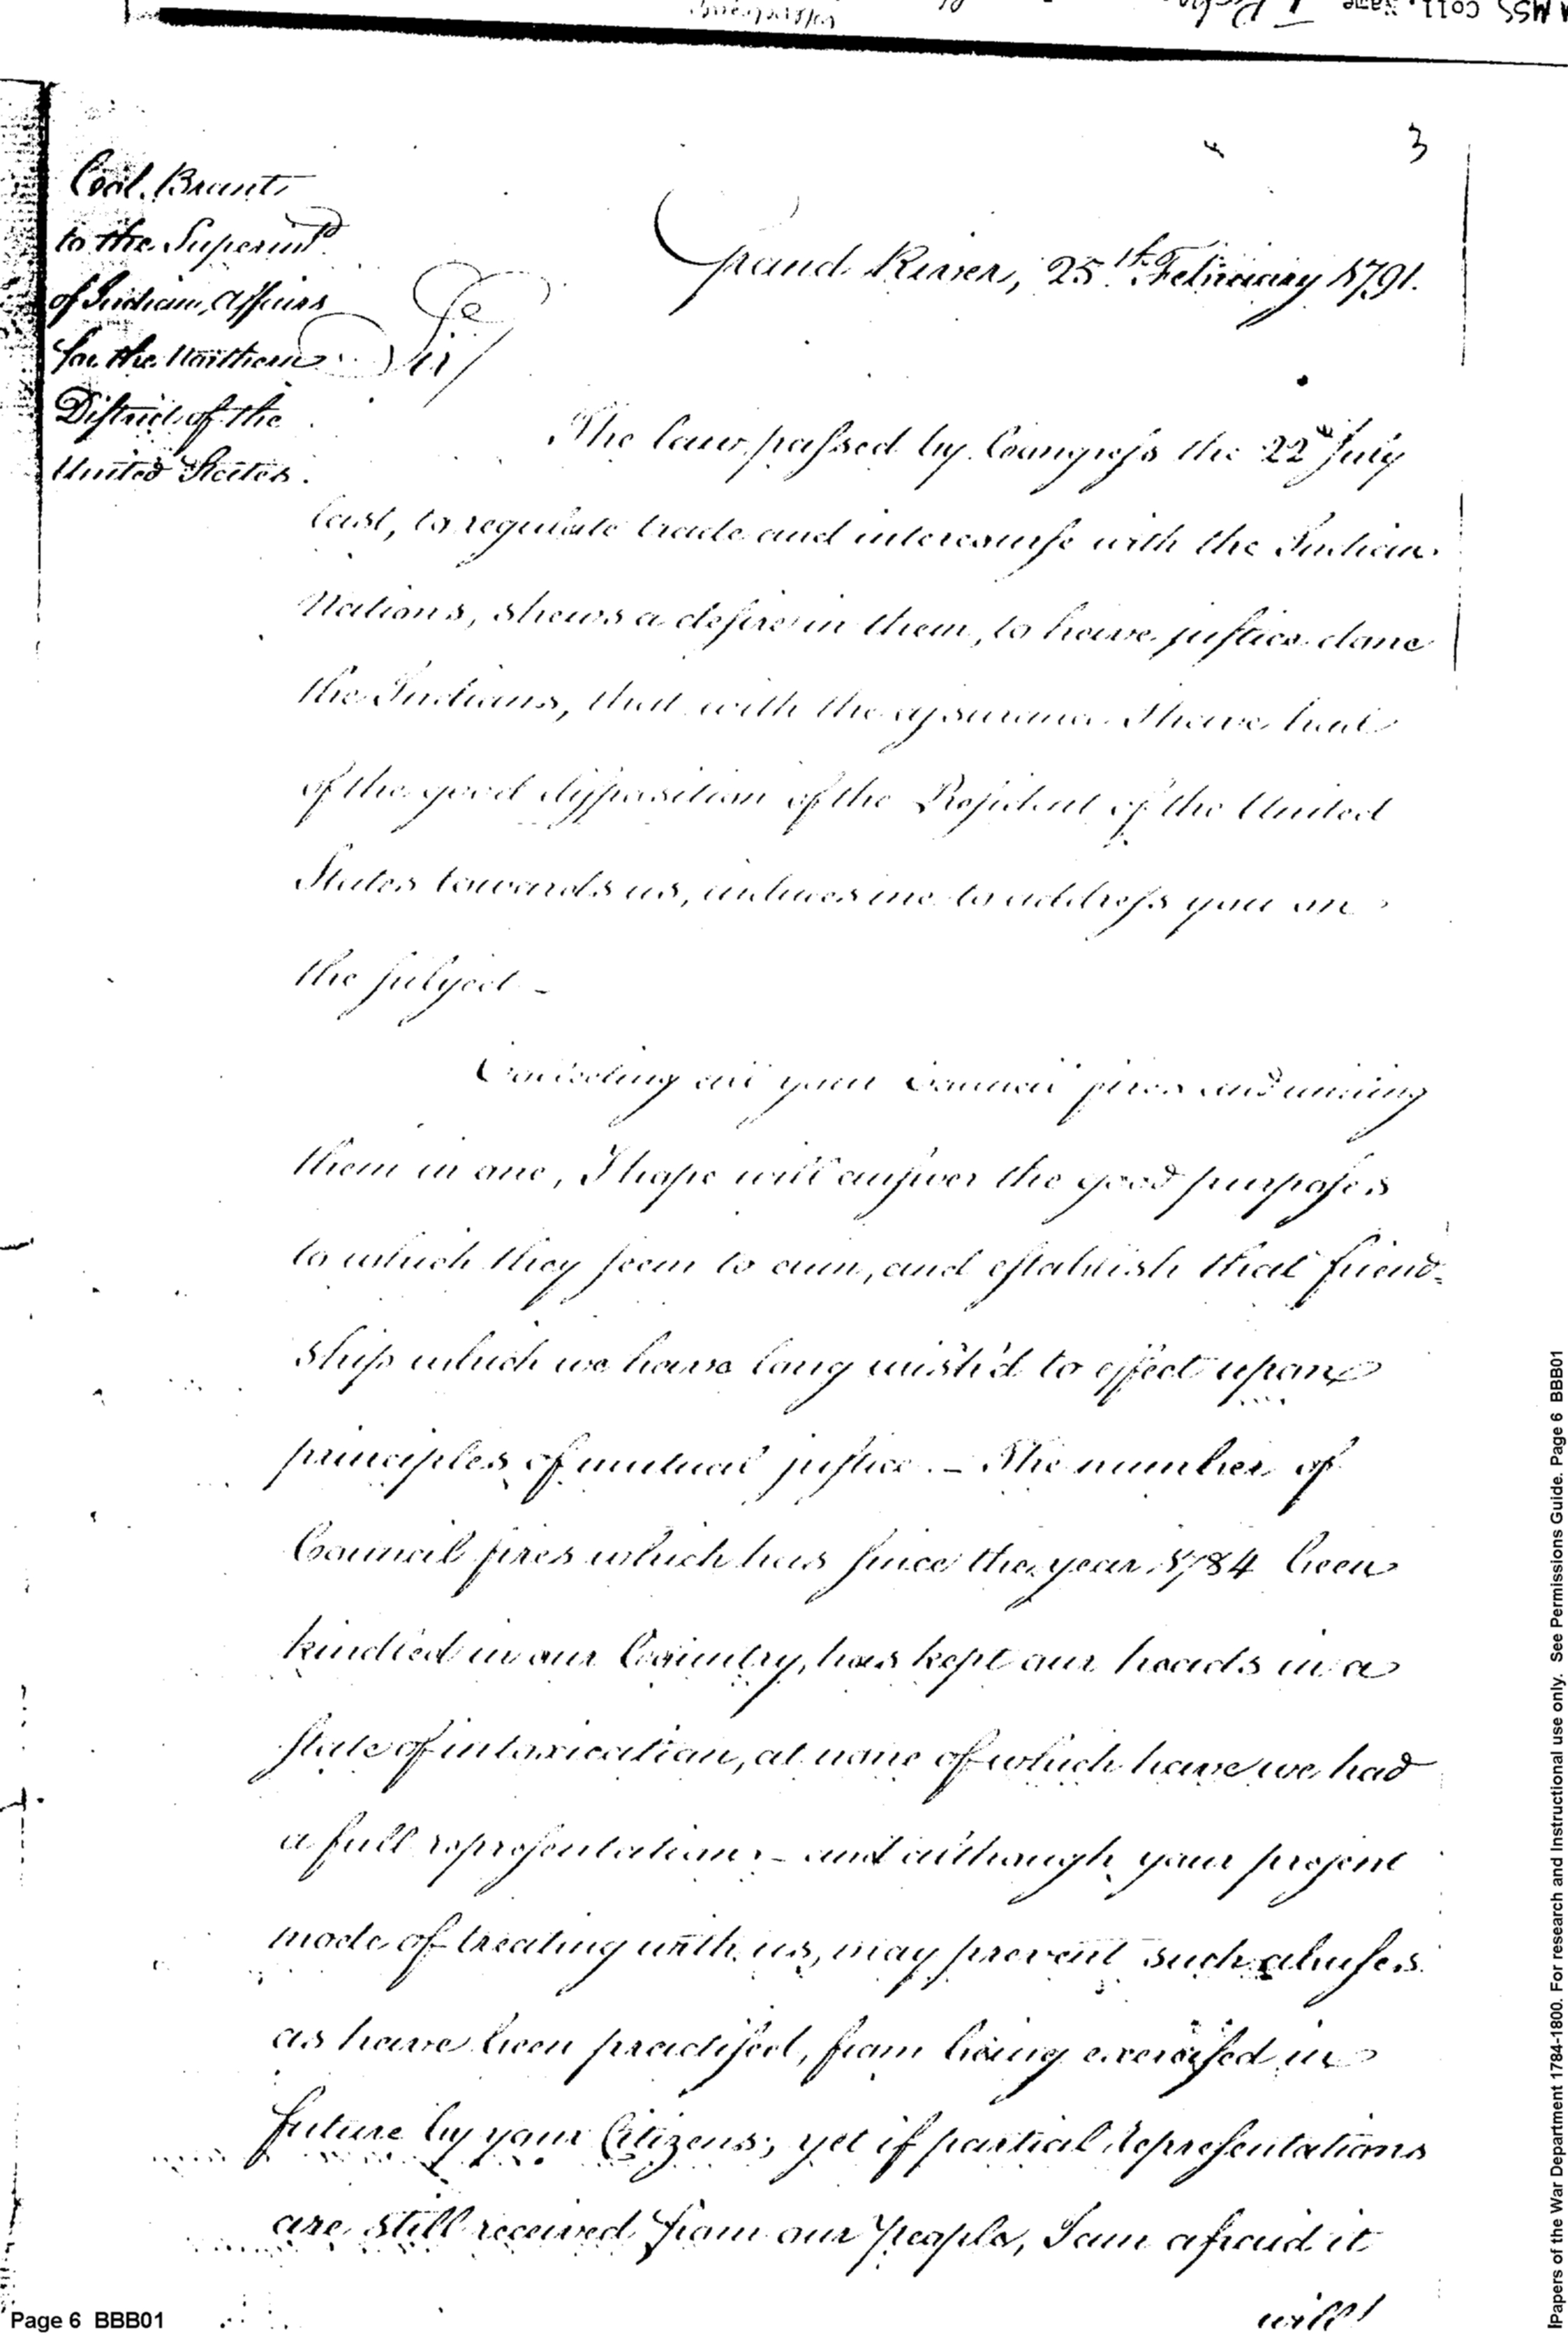 MSS Coll. Name
3
Coll. Brant
to the Superint<sup>d</sup>
of Indian Affairs
for the Northern
District of the
United States.
Grand River, 25<sup>th</sup> February 1791.
Sir/
The law passed by Congress the 22<sup>d</sup> July
last, to regulate trade and intercourse with the Indian
Nations, shews a desire in them, to have justice done
the Indians, that with the assurance I have had
of the good disposition of the President of the United
States towards us, induces me to address you on
the subject –
Concocting all your Council fires and uniting
them in one, I hope will answer the good purposes
to which they seem to aim, and establish that friend=
ship which we have long wish'd to effect upon
principles of mutual justice. – The number of
Council fires which has since the year 1784 been
kindled in our Country, has kept our heads in a
state of intoxication, at none of which have we had
a full representation; – and although your present
mode of treating with us, may prevent such abuses
as have been practised, from being exercised in
future by your Citizens; yet if partial representations
are still received from our People, I am afraid it
will
Page 6 BBB01
Papers of the War Department 1784-1800. For research and Instructional use only. See Permissions Guide. Page 6 BBB01